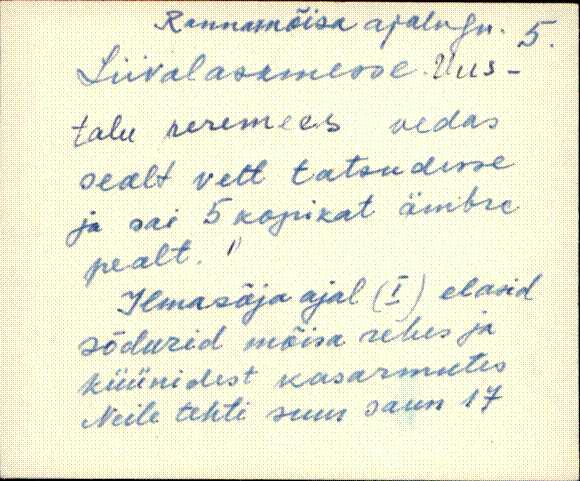 Rannamõisa ajalugu. 5.
Liivalasemesse. Uus-
talu peremees vedas
sealt vett tatsudesse
ja sai 5 kopikat ämbre
pealt. "
Ilmasõja ajal (I) elasid
sõdurid mõisa rehes ja
küünidest kasarmutes
Neile tehti suur saun 17